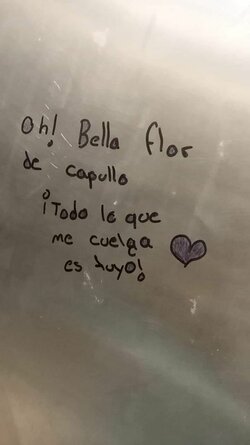 Oh! Bella flor
de capullo
¡Todo lo que
me cuelga
es tuyo!